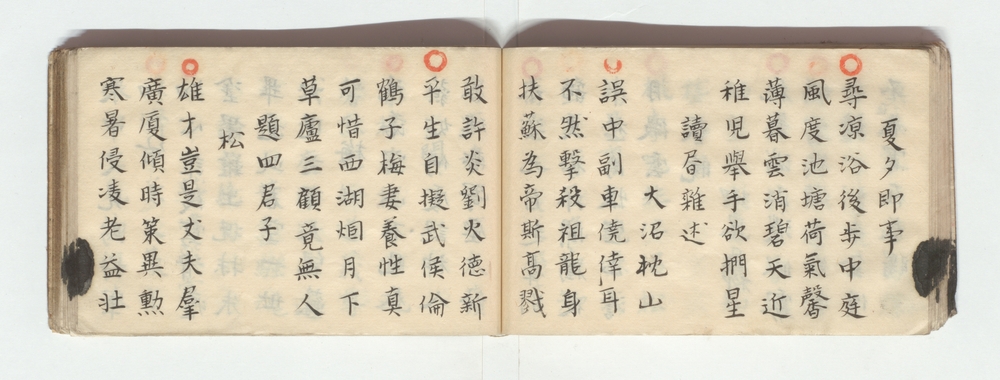 夏夕即事
尋凉浴後歩中庭
風度池塘荷氣馨
薄暮雲消碧天近
稚児擧手欲捫星
讀㫺雜述
大沼枕山
誤中副車僥倖耳
不然擊殺祖龍身
扶蘇為帝斯高戮
敢許炎劉火德新
平生自擬武侯倫
鶴子梅妻養性真
可惜西湖烟月下
草廬三顧竟無人
題四君子
松
雄才豈是丈夫羣
廣厦傾時策異勲
寒暑侵凌老益壮